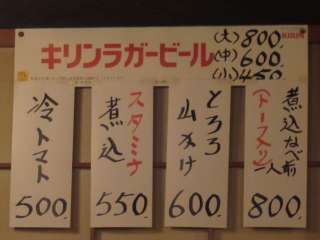 キリンラガービール
(大)800.
(中)600.
(小)450
KIRIN
煮込なべ一人前
(トーフ入り)
800.
とろろ
山かけ
600.
スタミナ
煮込
550-
冷トマト
500-